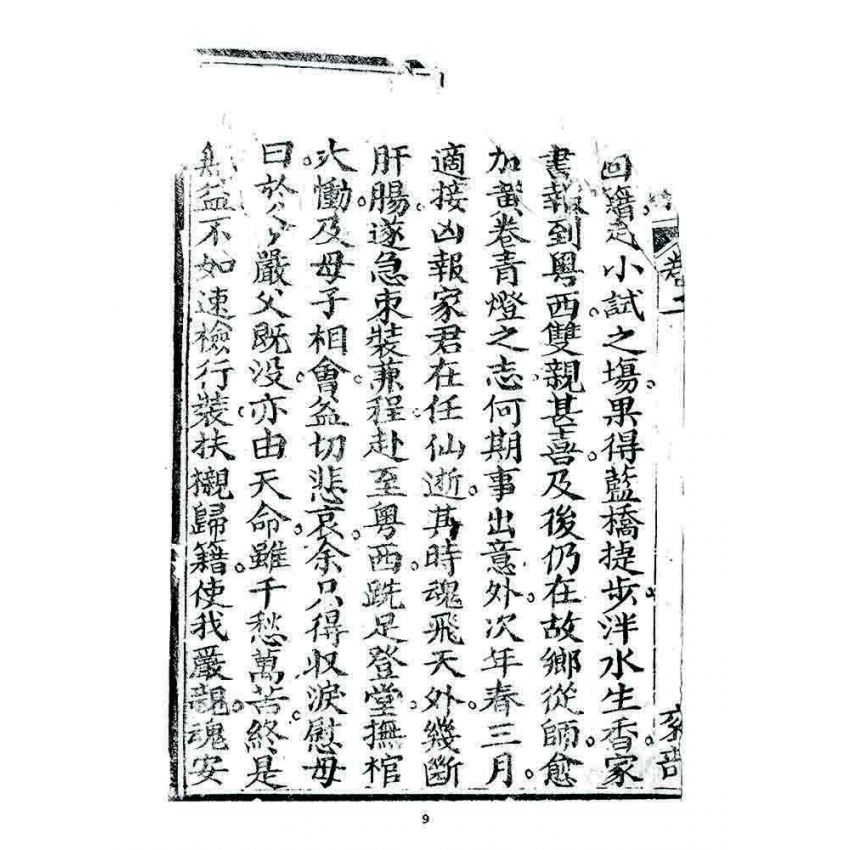 回籍赴小試之塲。果得藍橋捷步。泮水生香。家
書報到粤西。雙親甚喜。及後仍在故鄉從師。愈
加黃卷青燈之志。何期事出意外。次年春三月。
適接凶報家君在任仙逝。其時魂飛天外。幾斷
肝腸。遂急束裝兼程。赴至粤西。跣足登堂。撫棺
大慟。及母子相會。益切悲哀。余只得収淚慰母
曰。於今嚴父既没。亦由天命。雖千愁萬苦。終是
無益。不如速檢行裝。扶櫬歸籍。使我嚴親魂安
卷二
9